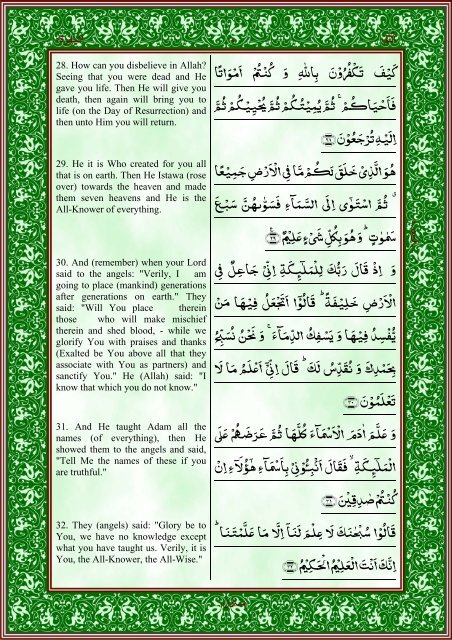 28. How can you disbelieve in Allah?
Seeing that you were dead and He
gave you life. Then He will give you
death, then again will bring you to
life (on the Day of Resurrection) and
then unto Him you will return.
كَيْفَ تَكْفُرُوْنَ بِاللّٰهِ وَ كُنْتُمْ اَمْوَاتًا
فَاَحْيَاكُمْ ۚ ثُمَّ يُمِيْتُكُمْ ثُمَّ يُحْيِيْكُمْ ثُمَّ
اِلَيْهِ تُرْجَعُوْنَ ﴿۲۸﴾
29. He it is Who created for you all
that is on earth. Then He Istawa (rose
over) towards the heaven and made
them seven heavens and He is the
All-Knower of everything.
هُوَ الَّذِیْ خَلَقَ لَكُمْ مَّا فِی الْاَرْضِ جَمِيْعًا
ۗ ثُمَّ اسْتَوٰۤی اِلَی السَّمَآءِ فَسَوّٰىهُنَّ سَبْعَ
سَمٰوٰتٍ ؕ وَ هُوَ بِكُلِّ شَیْءٍ عَلِيْمٌ ﴿۲۹﴾
30. And (remember) when your Lord
said to the angels: "Verily, I am
going to place (mankind) generations
after generations on earth." They
said: "Will You place therein
those who will make mischief
therein and shed blood, - while we
glorify You with praises and thanks
(Exalted be You above all that they
associate with You as partners) and
sanctify You." He (Allah) said: "I
know that which you do not know."
وَ اِذْ قَالَ رَبُّكَ لِلْمَلٰٓئِكَةِ اِنِّیْ جَاعِلٌ فِی
الْاَرْضِ خَلِيْفَةً ؕ قَالُوْۤا اَتَجْعَلُ فِيْهَا مَنْ
يُّفْسِدُ فِيْهَا وَ يَسْفِكُ الدِّمَآءَ ۚ وَ نَحْنُ نُسَبِّحُ
بِحَمْدِكَ وَ نُقَدِّسُ لَكَ ؕ قَالَ اِنِّیْۤ اَعْلَمُ مَا لَا
تَعْلَمُوْنَ ﴿۳۰﴾
31. And He taught Adam all the
names (of everything), then He
showed them to the angels and said,
"Tell Me the names of these if you
are truthful."
وَ عَلَّمَ اٰدَمَ الْاَسْمَآءَ كُلَّهَا ثُمَّ عَرَضَهُمْ عَلَی
الْمَلٰٓئِكَةِ ۙ فَقَالَ اَنْۢبِـُٔوْنِیْ بِاَسْمَآءِ هٰۤؤُلَآءِ اِنْ
كُنْتُمْ صٰدِقِيْنَ ﴿۳۱﴾
32. They (angels) said: "Glory be to
You, we have no knowledge except
what you have taught us. Verily, it is
You, the All-Knower, the All-Wise."
قَالُوْا سُبْحٰنَكَ لَا عِلْمَ لَنَاۤ اِلَّا مَا عَلَّمْتَنَا ؕ
اِنَّكَ اَنْتَ الْعَلِيْمُ الْحَكِيْمُ ﴿۳۲﴾